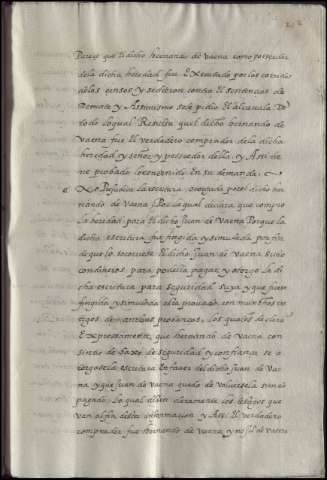 Parece que el dicho hernando de vaena como posseedor
dela dicha heredad fue Executado por los corridos
delos censos y se dieron contra El sentencias de
Remate y Assimismo se le pidio El alcavala De
todo lo qual Resulta quel dicho hernando de
vaena fue El verdadero comprador dela dicha
heredad y señor y posseedor della y Assi tie
ne probado lo contenido En su demanda
No Perjudica la escritura otorgada por el dicho her
nando de vaena Por la qual declara que compro
la heredad para El dicho Juan de Vaena Porque la
dicha escritura fue fingida y simulada por fin
de que lo socorriese El dicho Juan de Vaena suero
con dineros para poderla pagar y otorgo la di
cha escritura para seguridad suya y que fuese
fingida y simulada esta provado con muchos tes
tigos
Expresamente que hernando de vaena con
so color de seguridad y confiança se o
torgo la escritura En favor del dicho Juan de Vae
na y que Juan de vaena quedo de volversela siendo
pagado Lo qual dizen claramente los testigos que
van al fin desta informacion y Assi El verdadero
comprador fue hernando de vaena y no Juan de vaena